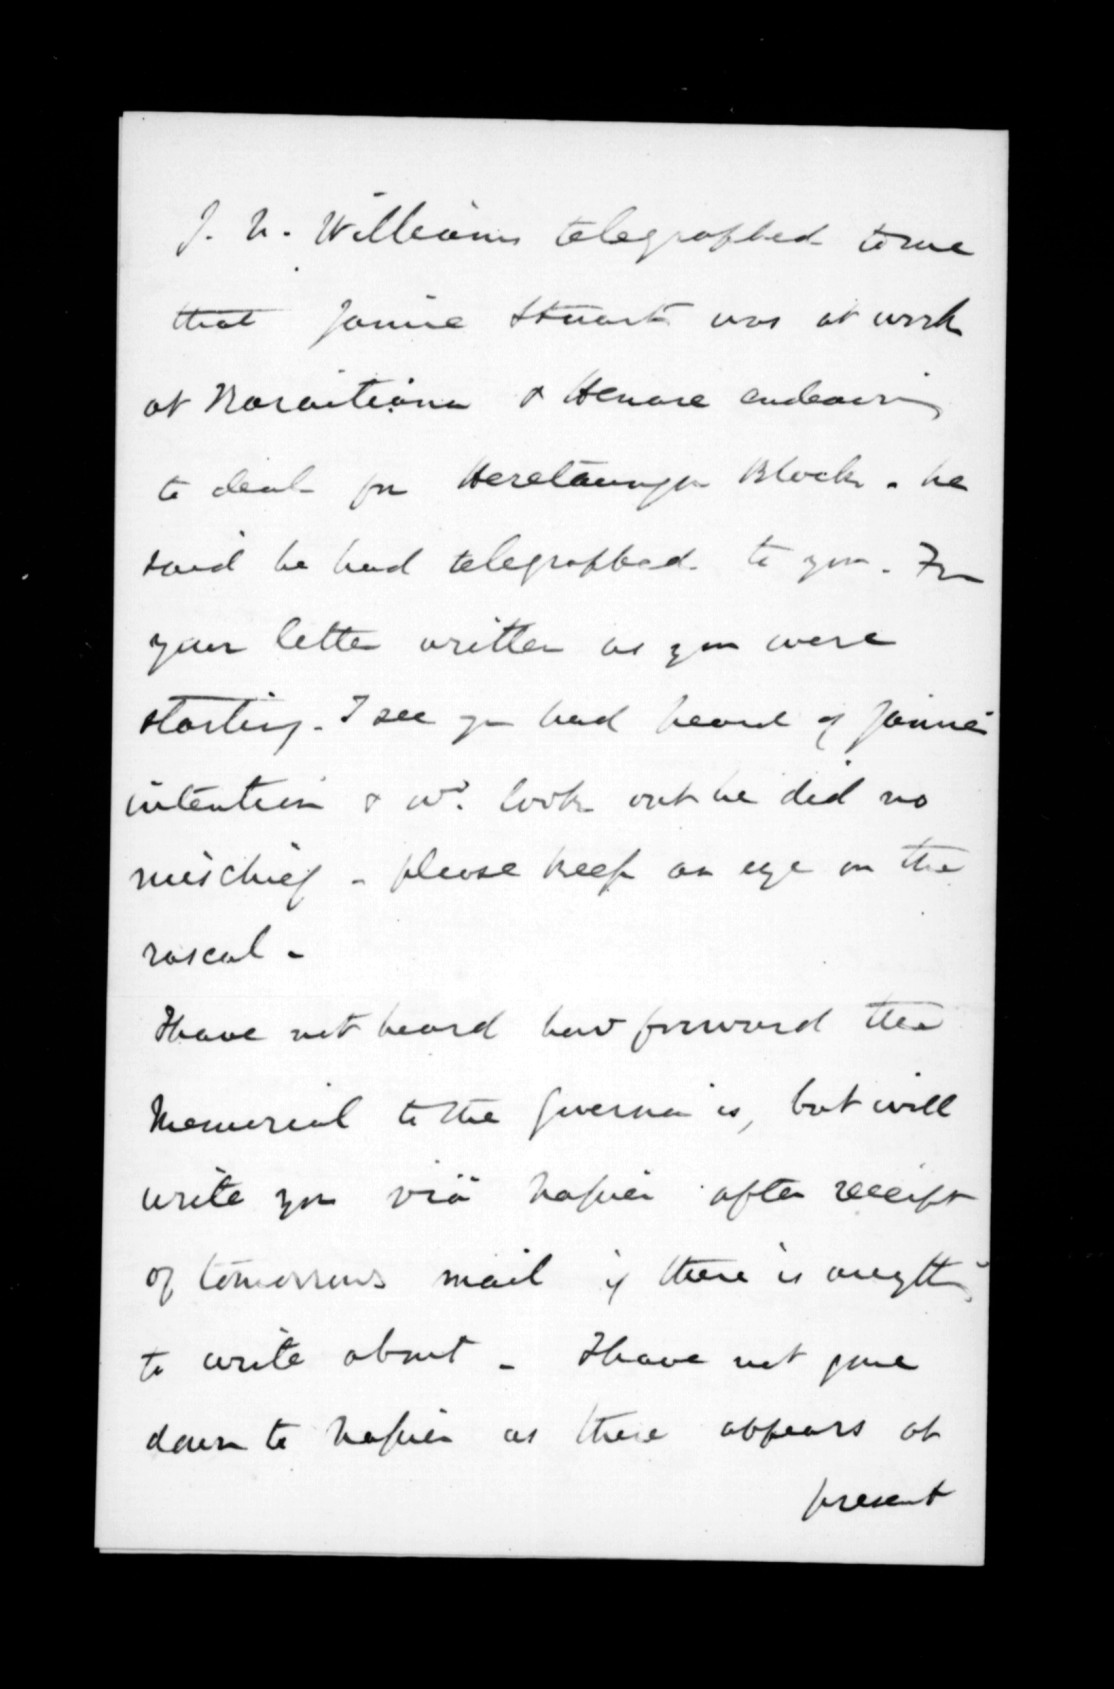 J. N. Williams telegraphed to me
that Jamie Stuart was at work
at Karaitiana & Henare endeavoring
to deal for Heretaunga Block. he
said he had telegraphed to you. From
your letter written as you were
starting. I see you had heard of Jamie's
intention & wd. look out he did no
mischief - please keep an eye on the
rascal -
I have not heard how forward the
Memorial to the Governor is, but will
write you viâ Napier after receipt
of tomorrows mail if there is anything
to write about - I have not gone
down to Napier as there appears at
present